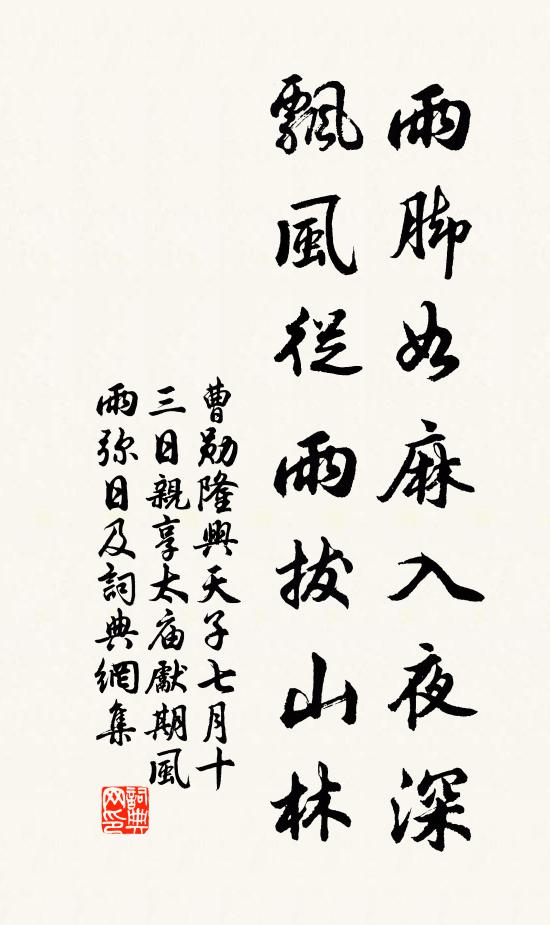 雨脚如麻入夜深
飄風從雨拔山林
曹勛隆興天子七月十
三日親享太庙獻期風
雨弥日及詞典網集
詞典
网印